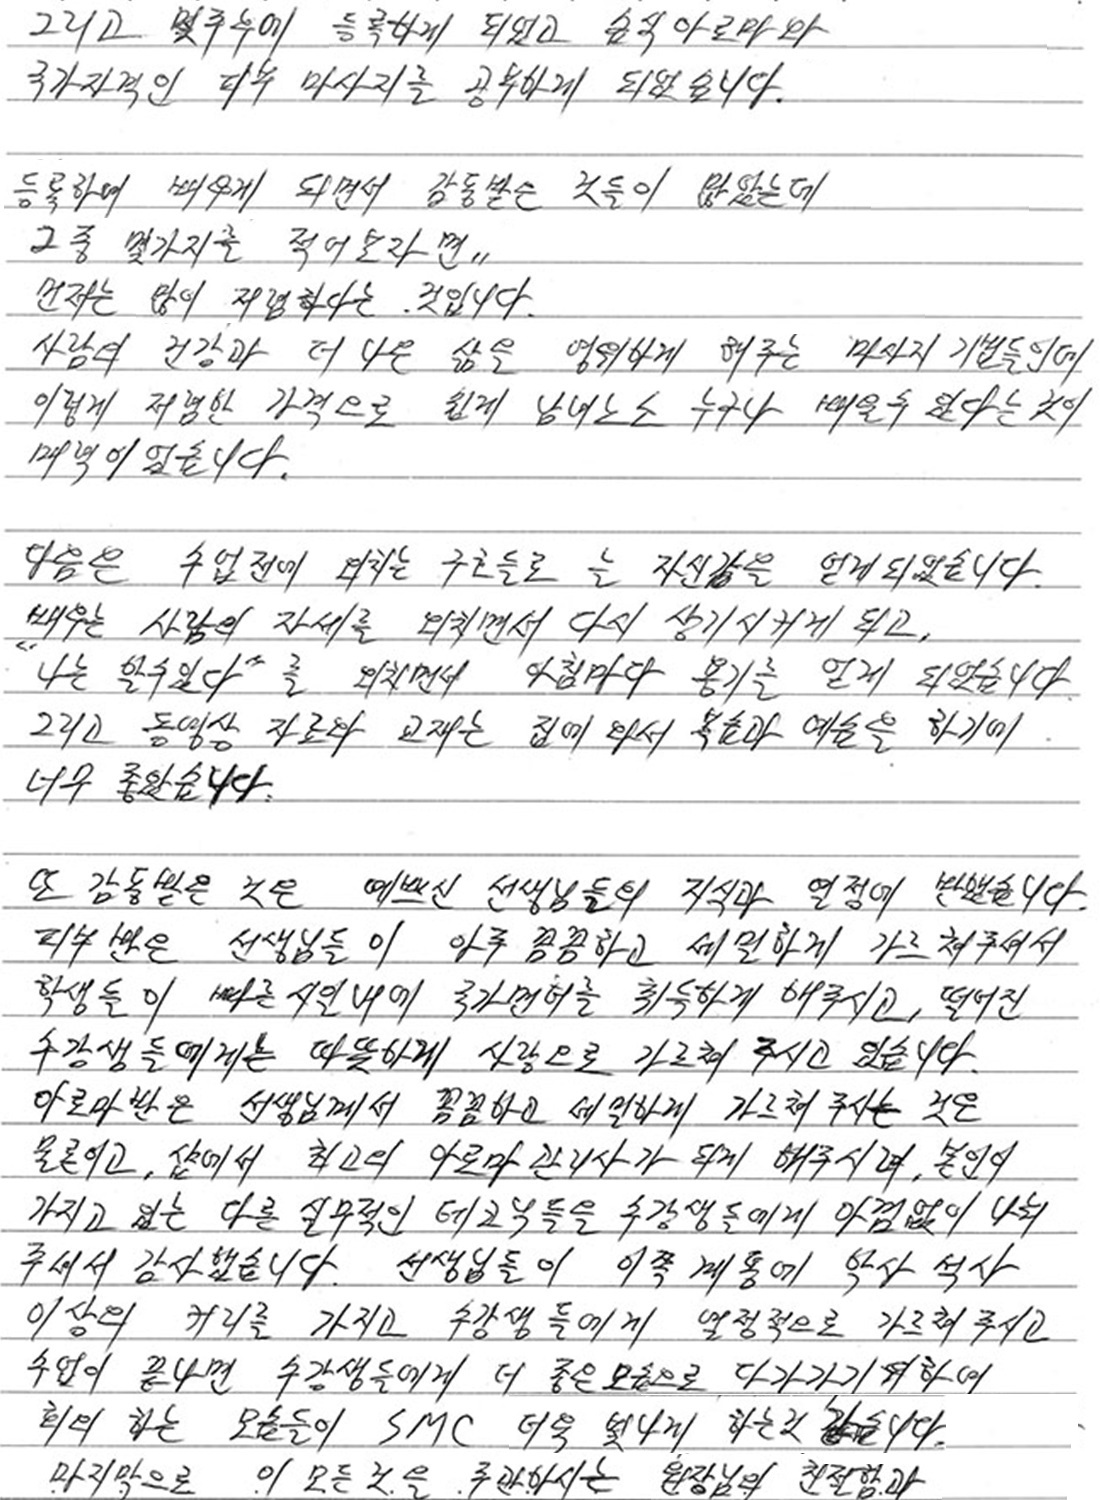 그리고 몇주후에 등록하게 되었고 습식아로마와
국가자격인 피부 마사지를 공부하게 되었습니다.
등록하여 배우게 되면서 감동받은 것들이 많았는데
그 중 몇가지를 적어보자면,,
먼저는 많이 저렴하다는 것입니다.
사람의 건강과 더 나은 삶을 영위하게 해주는 마사지 기법들인데
이렇게 저렴한 가격으로 쉽게 남녀노소 누구나 배울수 있다는 것이
매력이었습니다.
다음은 수업전에 외치는 구호들로 는 자신감을 얻게되었습니다.
배우는 사람의 자세를 외치면서 다시 상기시키게 되고,
"나는 할수있다"를 외치면서 아침마다 용기를 얻게 되었습니다.
그리고 동영상 자료와 교재는 집에 와서 복습과 예습을 하기에
너무 좋았습니다.
또 감동받은 것은 예쁘신 선생님들의 지식과 열정에 반했습니다.
피부반은 선생님들이 아주 꼼꼼하고 세밀하게 가르쳐주셔서
학생들이 빠른시일내에 국가면허를 취득하게 해주시고, 떨어진
수강생들에게는 따뜻하게 사랑으로 가르쳐 주시고 있습니다.
아로마반은 선생님께서 꼼꼼하고 세밀하게 가르쳐 주시는 것은
물론이고, 샵에서 최고의 아로마 관리사가 되게 해주시며, 본인이
가지고 있는 다른 실무적인 테크닉들을 수강생들에게 아낌없이 나눠
주셔서 감사했습니다. 선생님들이 이쪽 계통에 학사 석사
이상의 커리를 가지고 수강생들에게 열정적으로 가르쳐 주시고
수업이 끝나면 수강생들에게 더 좋은모습으로 다가가기 위하여
회의 하는 모습들이 SMC 더욱 빛나게 하는것 같습니다.
마지막으로 이 모든것을 주관하시는 원장님의 친절함과